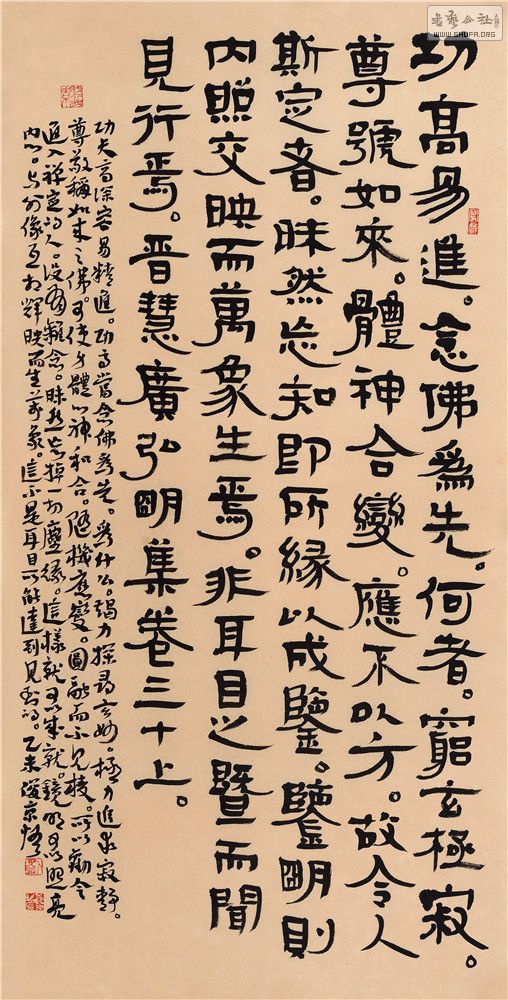 功高易進。念佛為先。何者。窮玄極寂。
尊號如來。體神合變。應不以方。故令人
斯定者。昧然忘知即所緣以成鑒。鑒明則
內照交映而萬象生焉。非耳目之暨而聞
見行焉。晉慧廣弘明集卷三十上。
功夫高深容易精進。功高當念佛為先。為什么。竭力探尋玄妙。極力進求寂靜。
尊敬稱如來之佛。可使身體以神和合。隨機應變。圓融而不見棱。所以勸令
進入禪定的人。沒有雜念。昧然忘掉一切塵緣。這樣就可以成就。鏡明可以照亮
內心。与外像互相輝映而生萬象。這不是耳目所能達到見到的。乙未
書藝公社
WWW.SHUFA.ORG